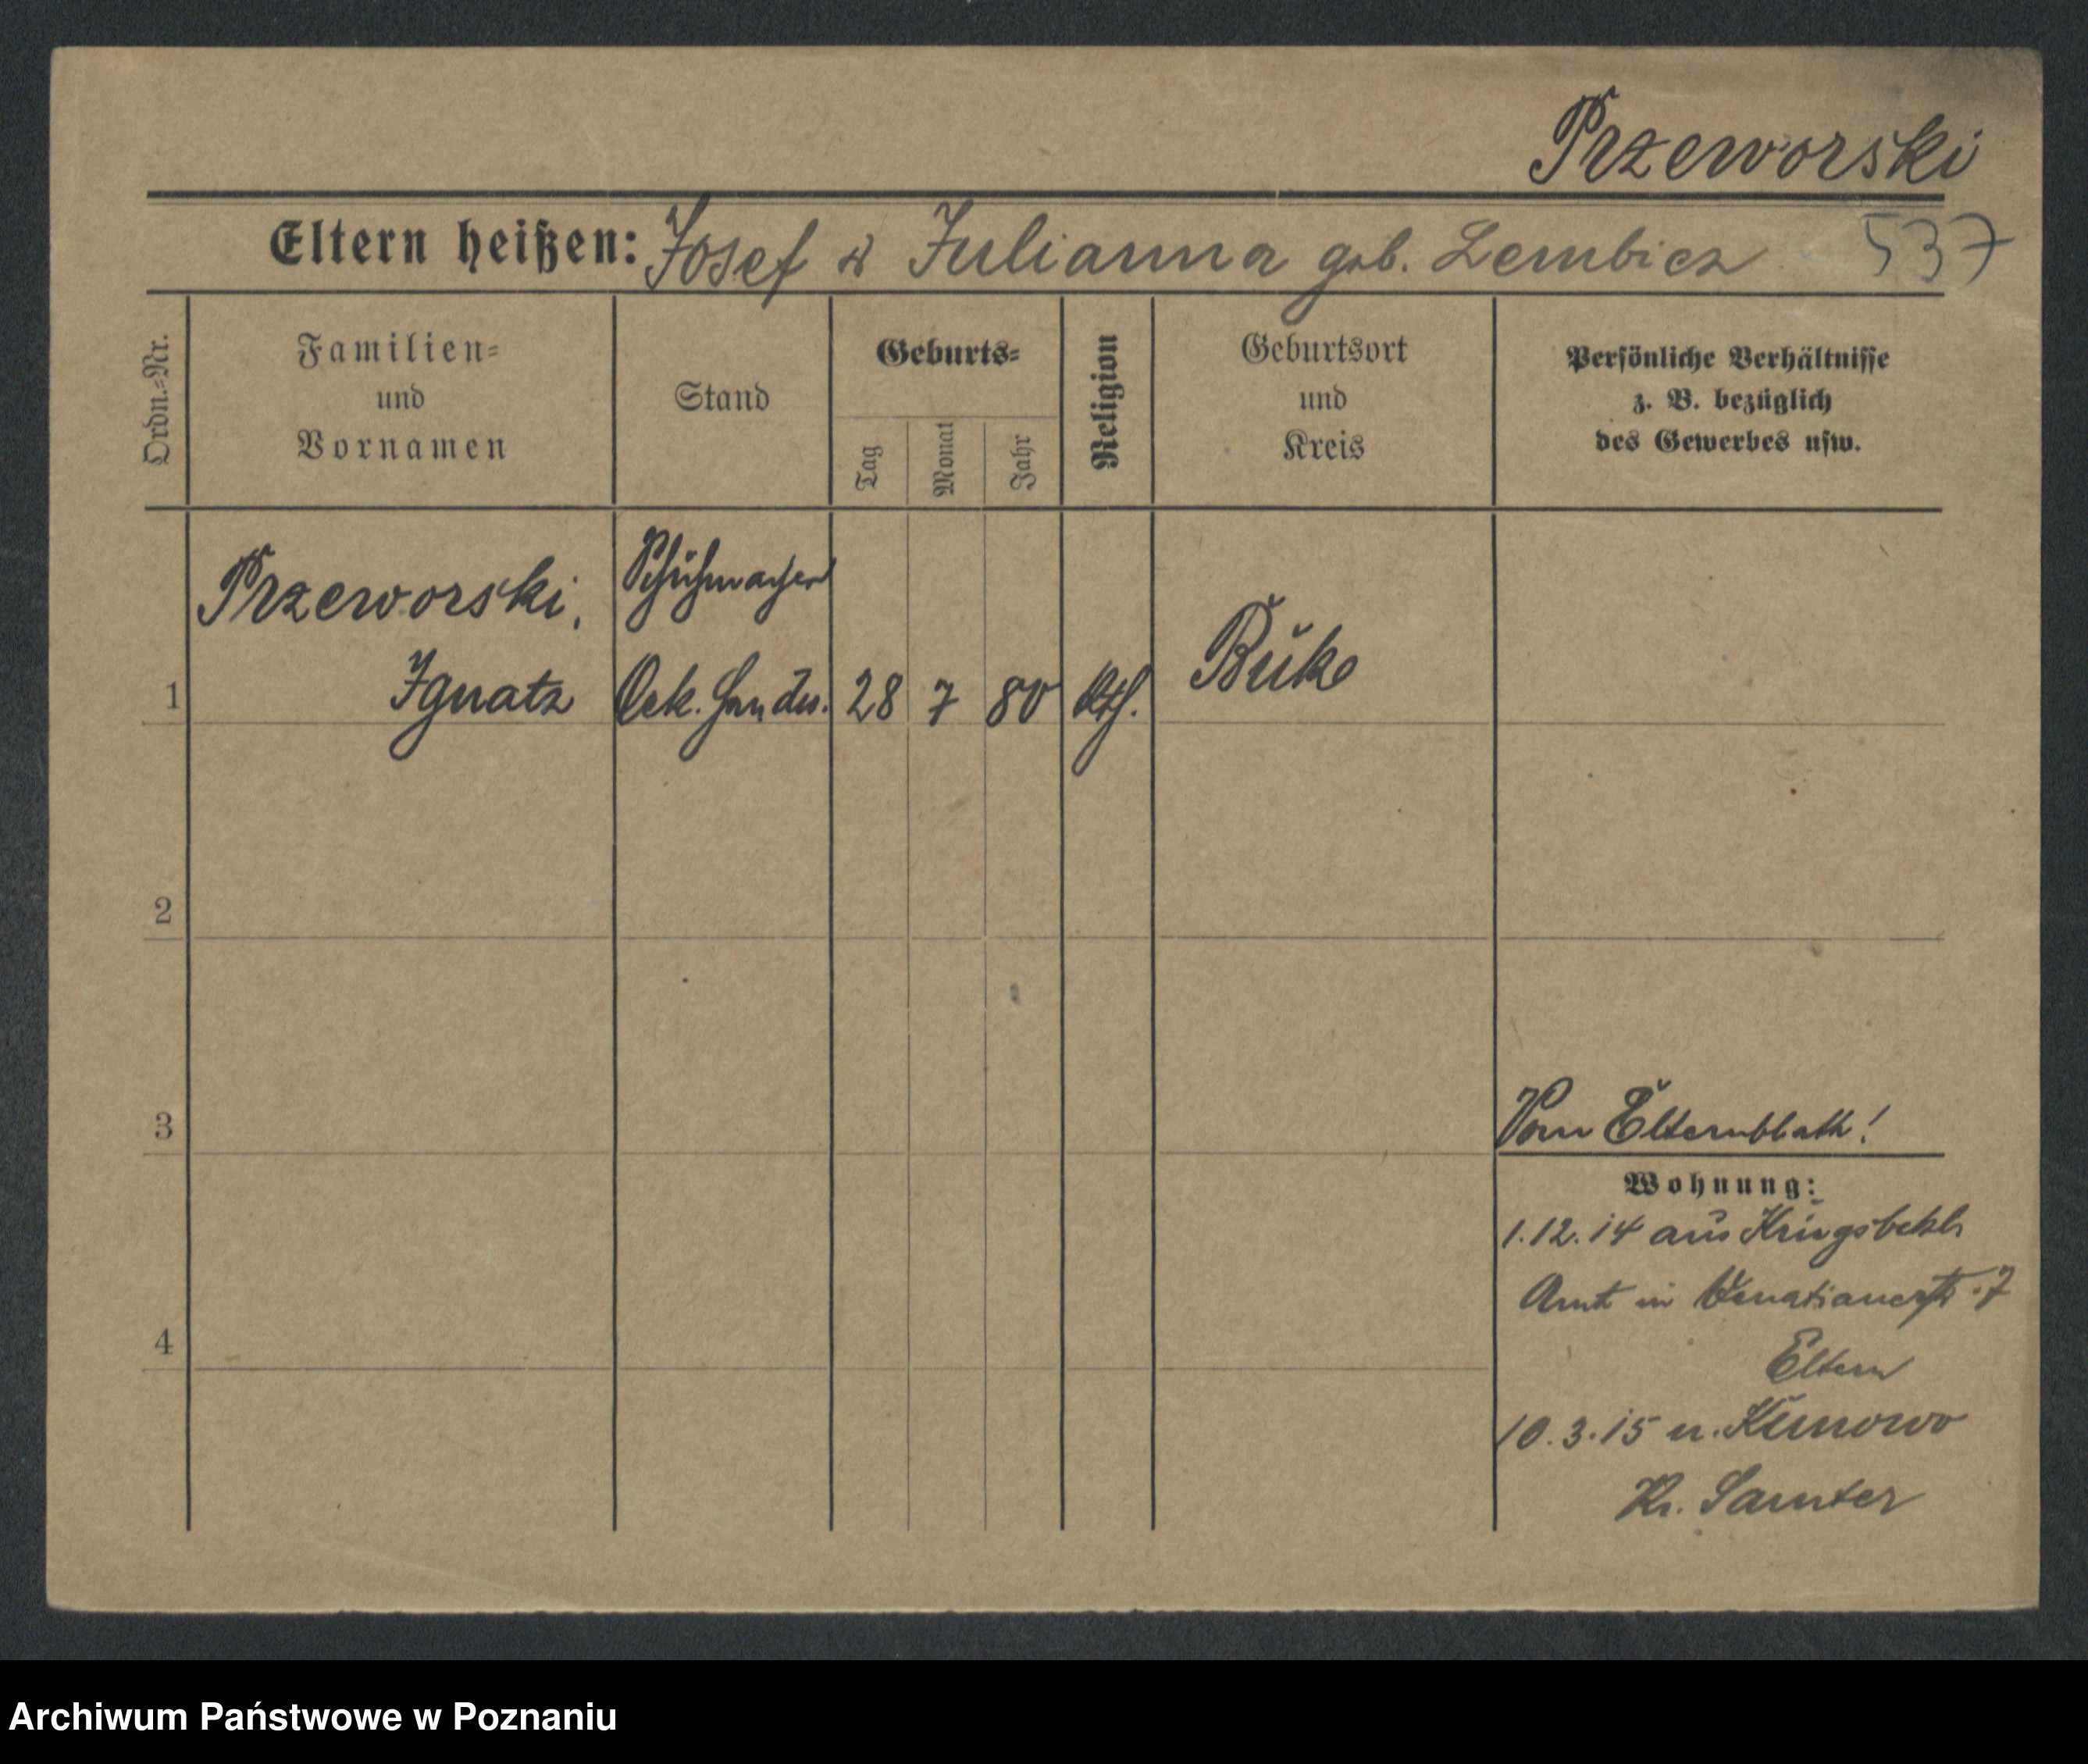 Przeworski
Eltern heißen: Josef & Julianna geb. Lembicz 537
Ordn.-Nr.
Familien-
und
Vornamen
Stand
Geburts-
Tag
Monat
Jahr
Religion
Geburtsort
und
Kreis
Persönliche Verhältnisse
z. B. bezüglich
des Gewerbes usw.
Przeworski, Schuhmacher
1 Ignatz 28 7 80 kth. Buk
2
3
Vom Elternblatt!
Wohnung:
1.12.14 aus Kriegsbekl.
Amt in Venetianerstr. 7
4
Eltern
10.3.15 n. Kunowo
Kr. Samter
Archiwum Państwowe w Poznaniu